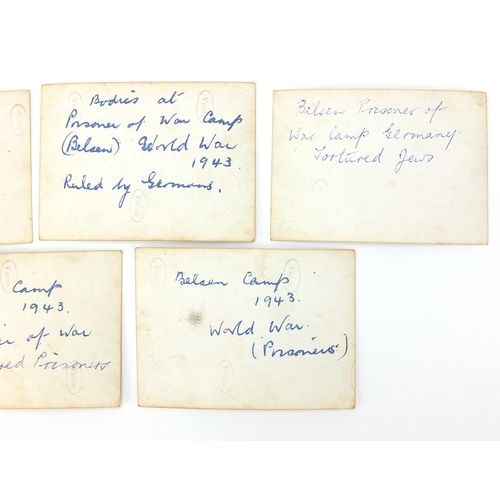 Bodies at
Prisoner of War Camp
(Belsen) World War
1943.
Ruled by Germans.
Belsen Prisoner of
War Camp Germany.
Tortured Jews
Camp
1943.
of War
Prisoners
Belsen Camp
1943.
World War.
(Prisoners)